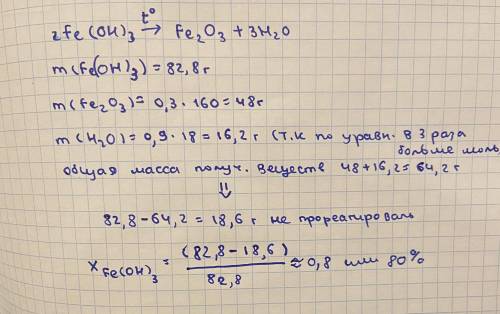 t°
2Fe(OH)₃ → Fe₂O₃ + 3H₂O
m(Fe(OH)₃) = 82,8 г
m(Fe₂O₃) = 0,3 · 160 = 48г
m(H₂O) = 0,9 · 18 = 16,2 г (т.к по уравн. в 3 раза
больше моль
общая масса получ. веществ 48+16,2=64,2 г
⇓
82,8 – 64,2 = 18,6 г не прореагировала
x Fe(OH)₃ = (82,8 – 18,6) / 82,8 ≈ 0,8 или 80%